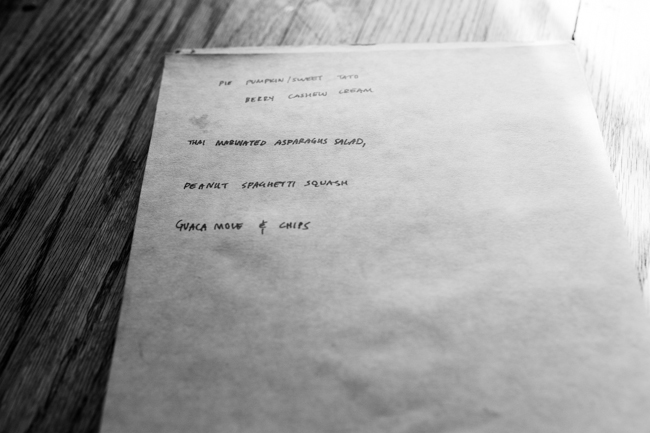 PIE PUMPKIN/SWEET TATO
BERRY CASHEW CREAM
THAI MARINATED ASPARAGUS SALAD,
PEANUT SPAGHETTI SQUASH
GUACA MOLE & CHIPS